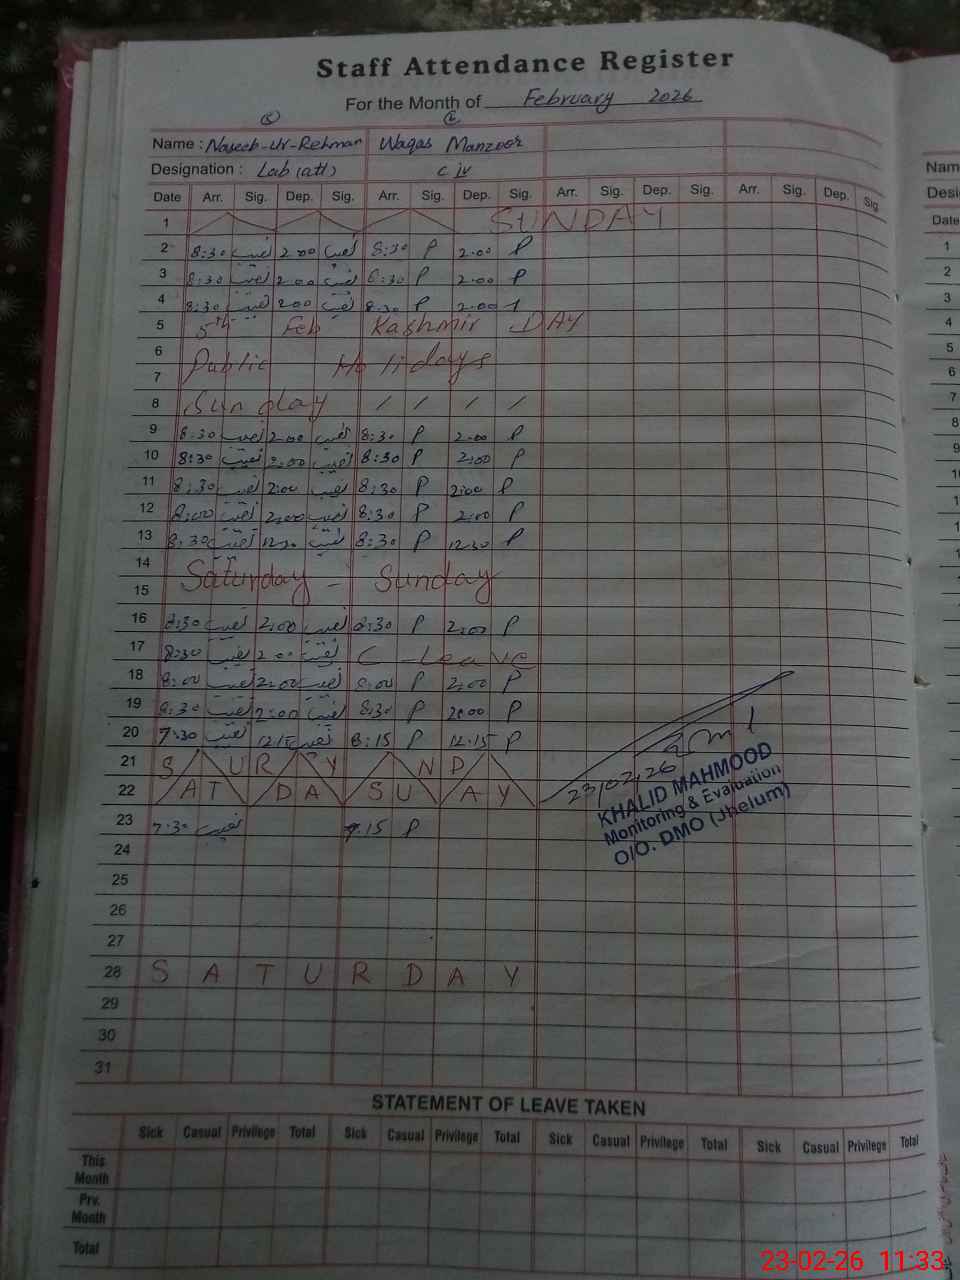 Staff Attendance Register
For the Month of February 2026
Name : Naseeb-Ur-Rehman Waqas Manzoor
Designation : Lab (att) C IV
Date Arr. Sig. Dep. Sig. Arr. Sig. Dep. Sig. Arr. Sig. Dep. Sig. Arr. Sig. Dep. Sig.
1 SUNDAY
2 8:30 نصیب 2.00 نصیب 8:30 P 2.00 P
3 8:30 نصیب 2.00 نصیب 8:30 P 2.00 P
4 8:30 نصیب 2.00 نصیب 8:30 P 2.00 P
5 5th Feb Kashmir DAY
6
Public Holidays
7
8 Sunday / / / /
9 8:30 نصیب 2.00 نصیب 8:30 P 2.00 P
10 8:30 نصیب 2:00 نصیب 8:30 P 2:00 P
11 8:30 نصیب 2:00 نصیب 8:30 P 2:00 P
12 8:00 نصیب 2:00 نصیب 8:30 P 2:00 P
13 8:30 نصیب 12:30 نصیب 8:30 P 12:30 P
14
Saturday - Sunday
15
16 8:30 نصیب 2:00 نصیب 8:30 P 2:00 P
17 8:30 نصیب 2.00 نصیب C-Leave
18 8:00 نصیب 2:00 نصیب 8:00 P 2:00 P
19 8:30 نصیب 2:00 نصیب 8:30 P 2:00 P
20 7:30 نصیب 12.15 نصیب 8:15 P 12.15 P
21 S U R Y N D
22 A T D A S U A Y
23/02/26
KHALID MAHMOOD
Monitoring & Evaluation
O/O. DMO (Jhelum)
23 7:30 نصیب 7.15 P
24
25
26
27
28 S A T U R D A Y
29
30
31
STATEMENT OF LEAVE TAKEN
Sick Casual Privilege Total Sick Casual Privilege Total Sick Casual Privilege Total Sick Casual Privilege Total
This Month
Prv. Month
Total
Nam
Desi
Date
1
2
3
4
5
6
7
8
9
23-02-26 11:33